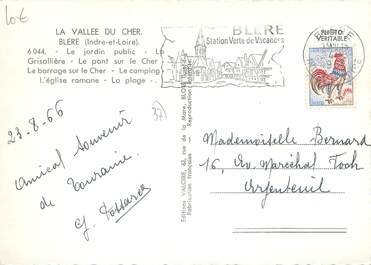 10€
LA VALLEE DU CHER.
BLERE (Indre-et-Loire).
6044. - Le jardin public - La
Grisollière - Le pont sur le Cher
Le barrage sur le Cher - Le camping
L'église romane - La plage -.
BLERE
Station Verte de Vacances
PHOTO
VERITABLE
37
23-8-66
Amical Souvenir
de Touraine.
Editions VALOIRE, 63, rue de la Mare, BLOIS
Reproduction
Mademoiselle Bernard
16, Av. Maréchal Foch
Argenteuil